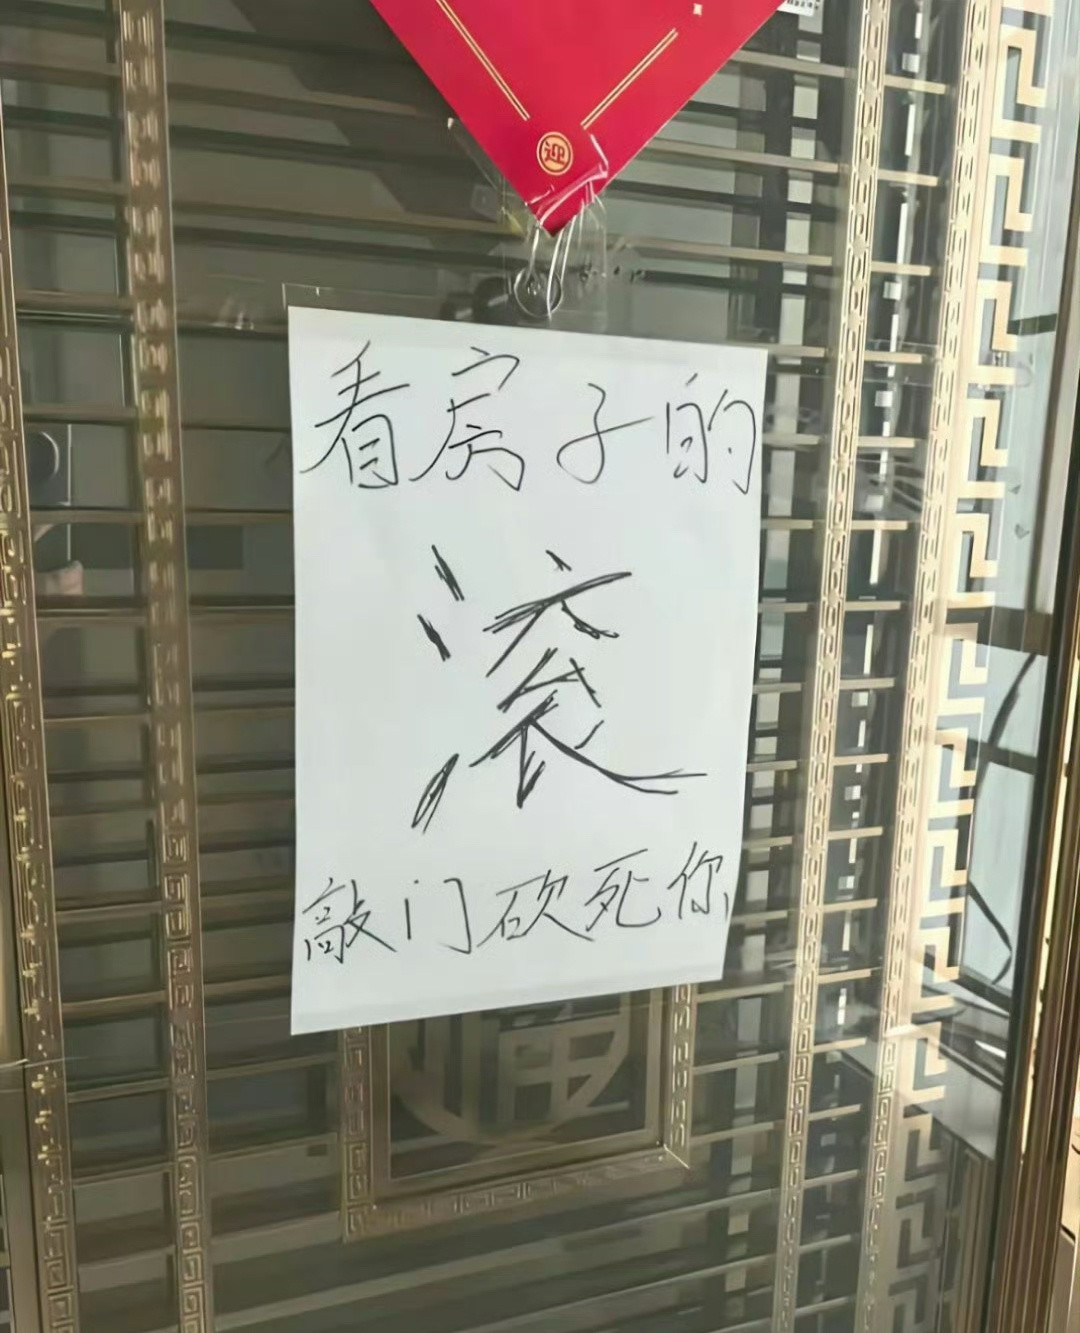 迎
看房子的
滚
敲门砍死你
福